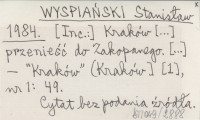 WYSPIAŃSKI Stanisław
1984. [Inc.:] Kraków [...]
przenieść do Zakopanego. [..]
– "Kraków" (Kraków) [1],
nr 1: 49.
Cytat bez podania źródła.